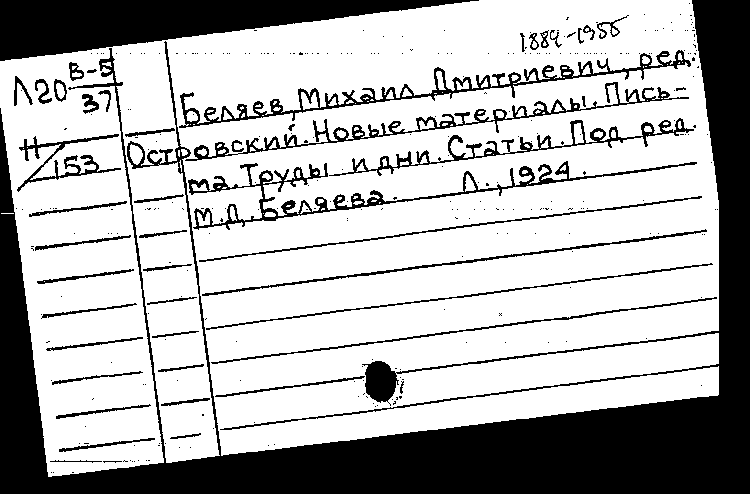 1884-1955
Л20 В-5/37
Беляев, Михаил Дмитриевич, ред.
Н/153
Островский. Новые материалы. Пись-
ма. Труды и дни. Статьи. Под ред.
М.Д. Беляева. Л., 1924.